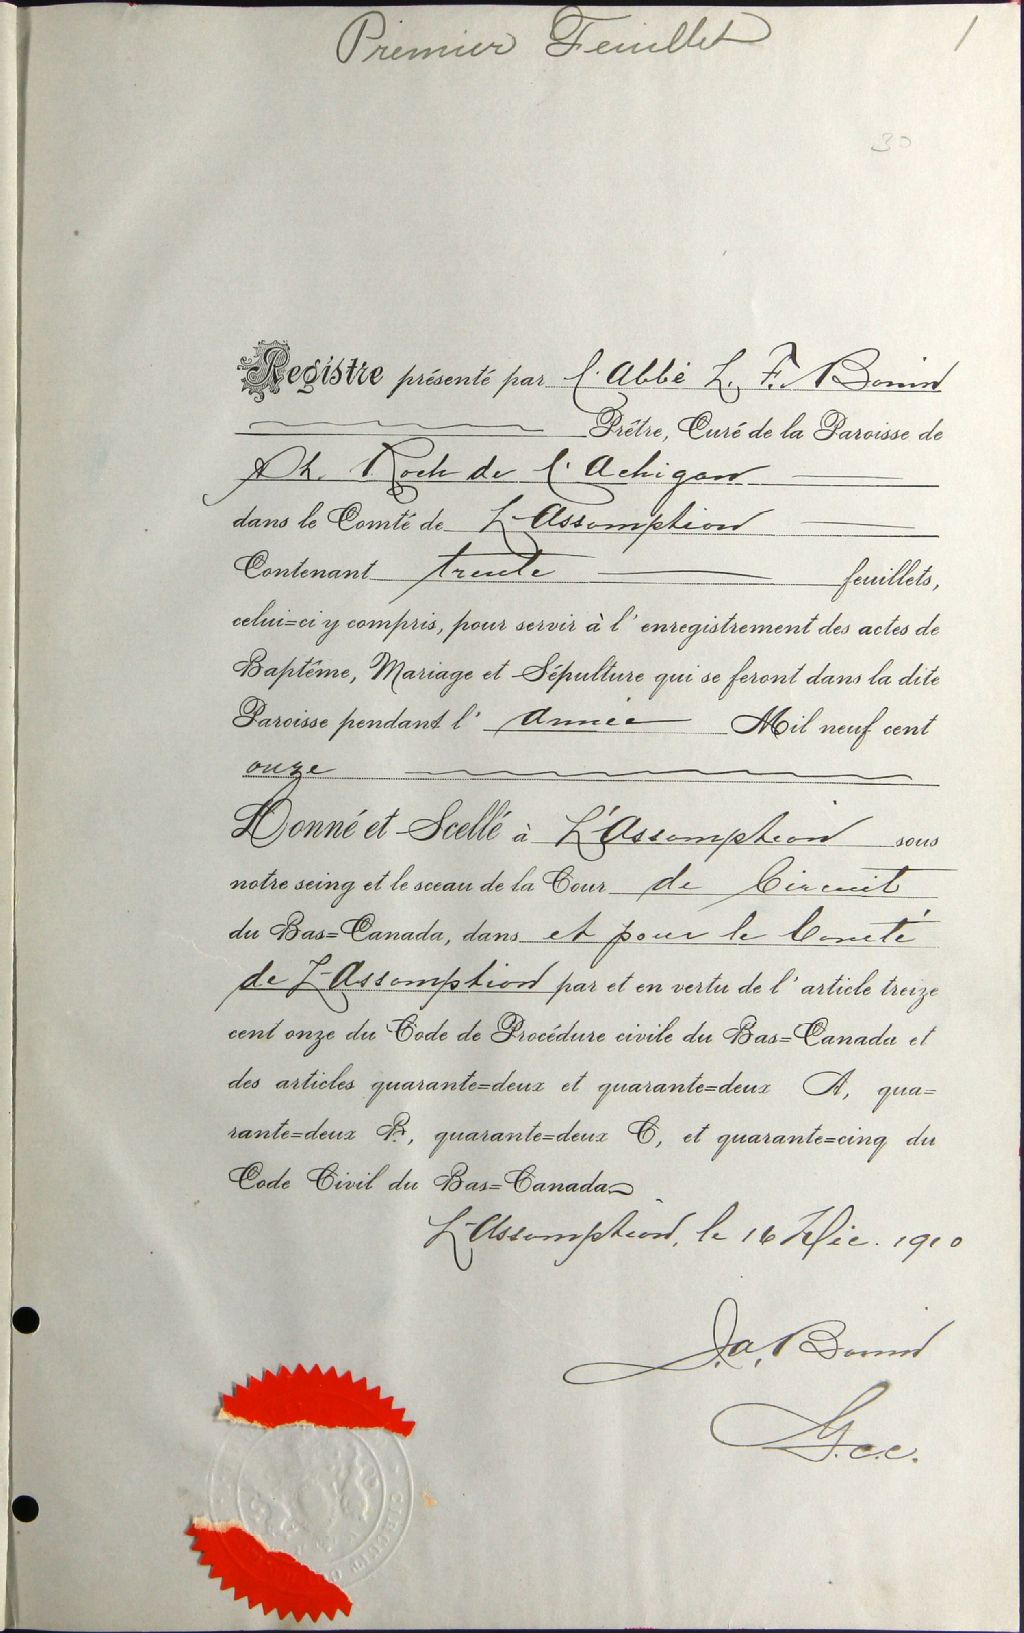 Premier Feuillet 1
30
Registre présenté par l'Abbé L. F. Bonin
Prêtre, Curé de la Paroisse de
St. Roch de l'Achigan
dans le Comté de L'Assomption
Contenant trente feuillets,
celui=ci y compris, pour servir à l'enregistrement des actes de
Baptême, Mariage et Sépulture qui se feront dans la dite
Paroisse pendant l'année Mil neuf cent
onze
Donné et Scellé à L'Assomption sous
notre seing et le sceau de la Cour de Circuit
du Bas=Canada, dans et pour le Comté
de L'Assomption par et en vertu de l'article treize
cent onze du Code de Procédure civile du Bas=Canada et
des articles quarante=deux et quarante=deux A, qua=
rante=deux B, quarante=deux C, et quarante=cinq du
Code Civil du Bas=Canada
L'Assomption, le 16 Déc. 1910
J.A. Bonin
G.c.c.
CIRCUIT